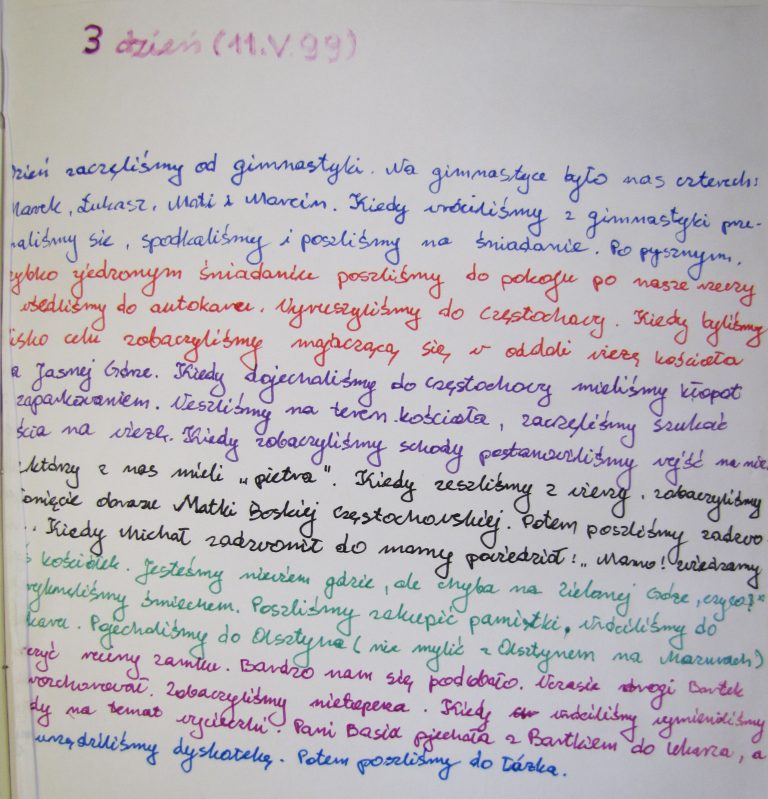 3 dzień (11.V.99)
Dzień zaczęliśmy od gimnastyki. Na gimnastyce było nas czterech:
Marek, Łukasz, Mati i Marcin. Kiedy wróciliśmy z gimnastyki prze-
haliśmy się, spodkaliśmy i poszliśmy na śniadanie. Po pysznym,
zybko zjedzonym śniadaniu poszliśmy do pokoju po nasze rzeczy
wsedliśmy do autokaru. Wyruszyliśmy do Częstochowy. Kiedy byliśmy
lisko celu zobaczyliśmy mgłączącą się w oddali wieżę kościoła
a Jasnej Górze. Kiedy dojechaliśmy do Częstochowy mieliśmy kłopot
zaparkowaniem. Weszliśmy na teren kościoła, zaczęliśmy szukać
ścia na wieżę. Kiedy zobaczyliśmy schody postanowiliśmy wejść na nie.
którzy z nas mieli „pietra". Kiedy zeszliśmy z wieży, zobaczyliśmy
onięcie obrazu Matki Boskiej Częstochowskiej. Potem poszliśmy zadzwo-
. Kiedy Michał zadzwonił do mamy powiedział: „Mamo! zwiedzamy
ś kościółek. Jesteśmy niewiem gdzie, ale chyba na Zielonej Górze, czyco?"
yknęliśmy śmiechem. Poszliśmy zakupić pamiątki, wróciliśmy do
karu. Pojechaliśmy do Olsztyna (nie mylić z Olsztynem na Mazurach)
czyć ruiny zamku. Bardzo nam się podobało. Wczasie drogi Bartek
rozchorował. Zobaczyliśmy nietoperza. Kiedy wróciliśmy wymieniliśmy
dy na temat wycieczki. Pani Basia pjechała z Bartkiem do lekarza, a
urządziliśmy dyskotekę. Potem poszliśmy do łóżka.